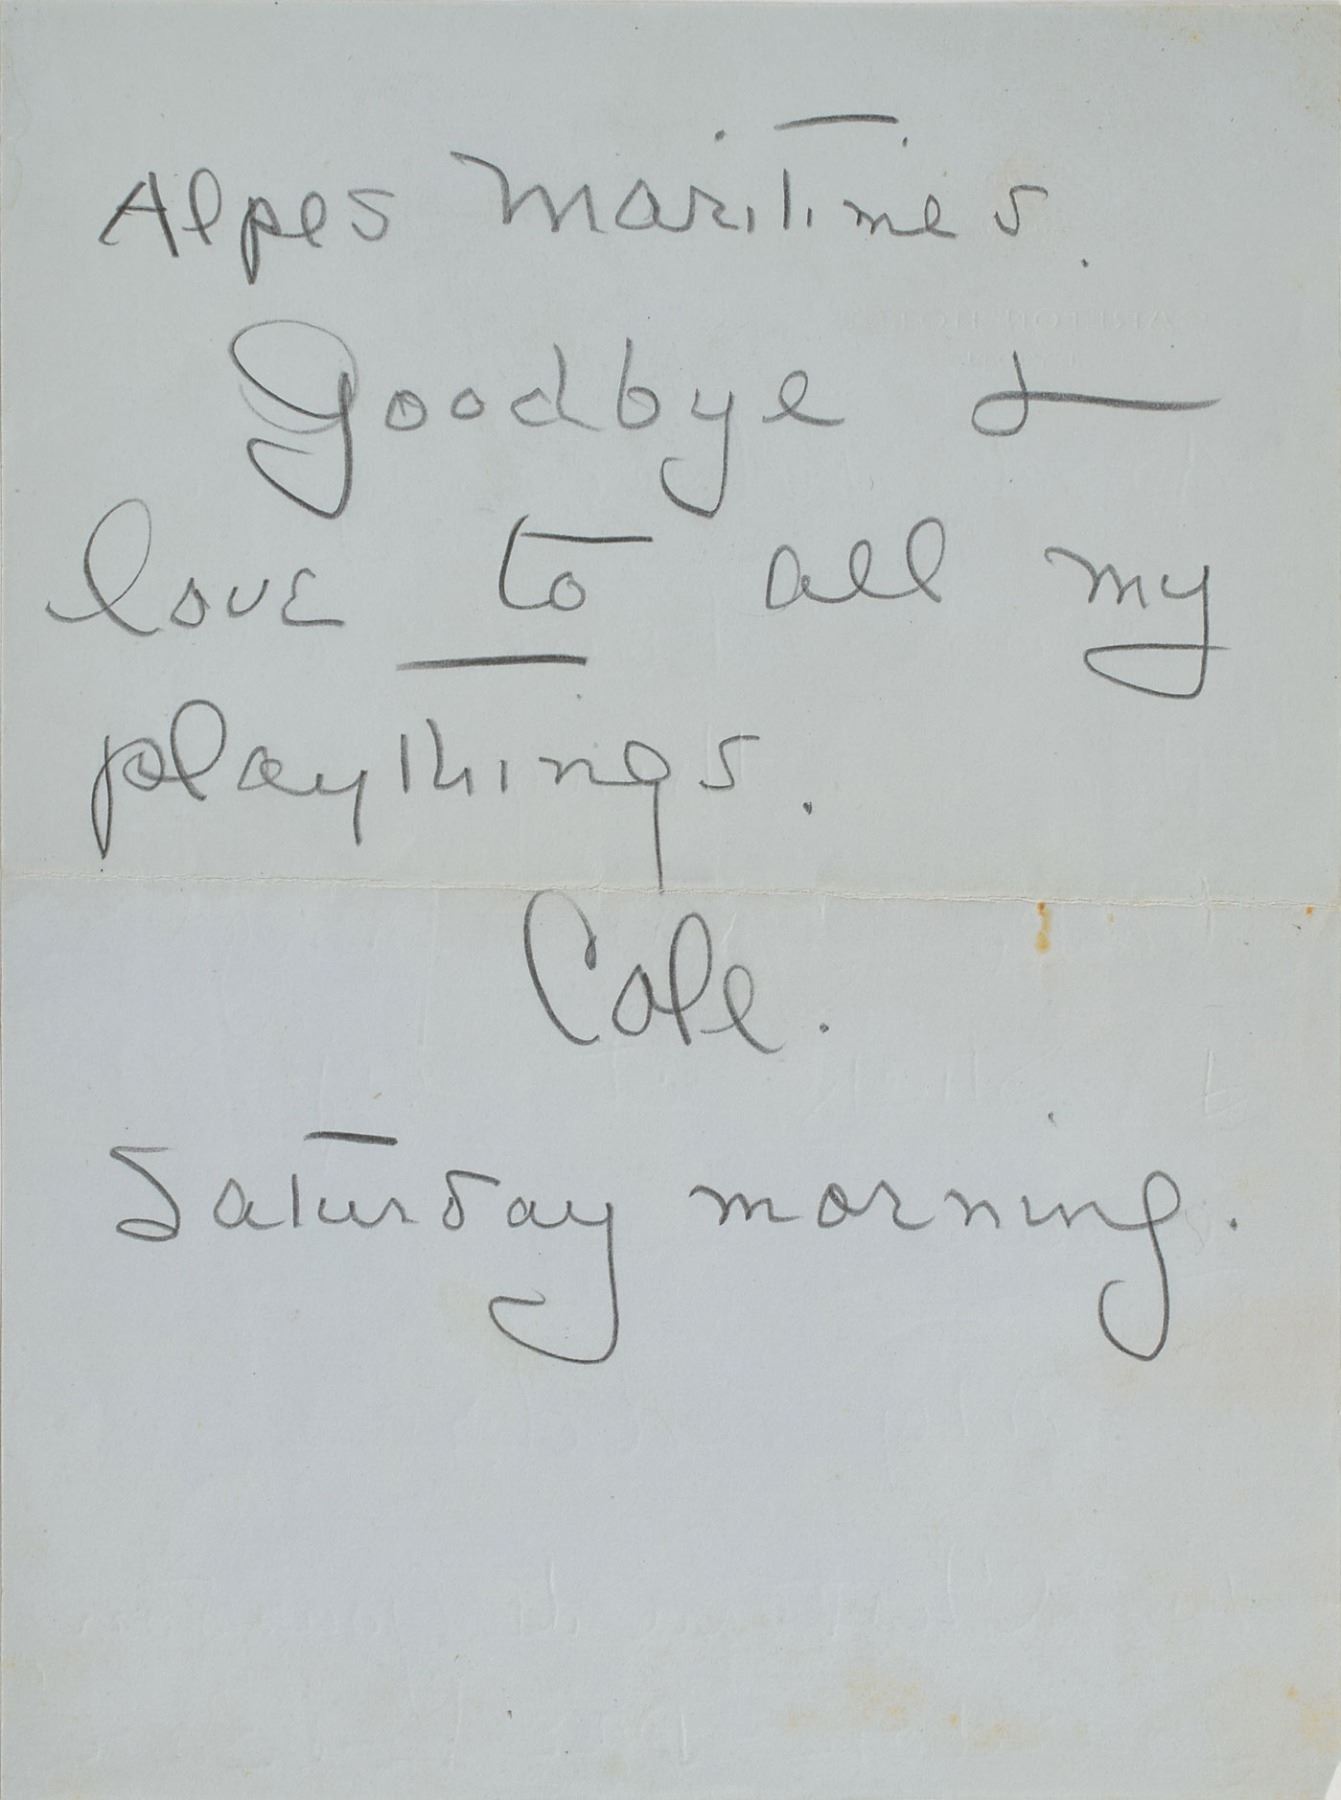 Alpes Maritimes.
Goodbye &
love to all my
playthings.
Cole.
Saturday morning.